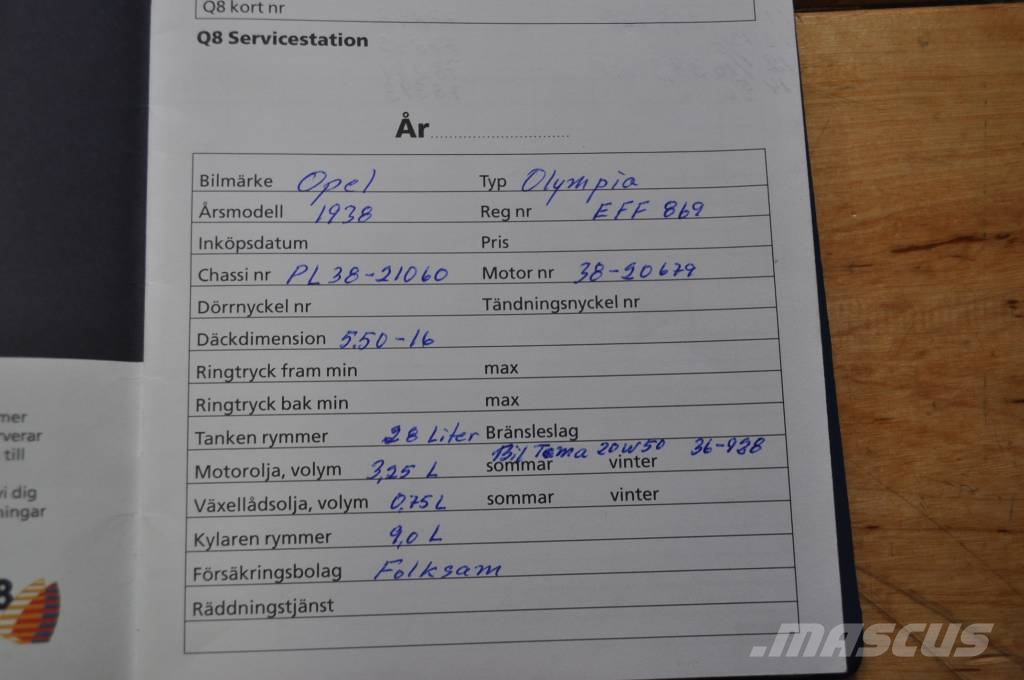 Q8 kort nr
Q8 Servicestation
År
Bilmärke Opel Typ Olympia
Årsmodell 1938 Reg nr EFF 869
Inköpsdatum Pris
Chassi nr PL 38-21060 Motor nr 38-20679
Dörrnyckel nr Tändningsnyckel nr
Däckdimension 5.50-16
Ringtryck fram min max
Ringtryck bak min max
Tanken rymmer 28 Liter Bränsleslag
Bil Tema 20W50 36-938
Motorolja, volym 3,25 L sommar vinter
Växellådsolja, volym 0,75 L sommar vinter
Kylaren rymmer 9,0 L
Försäkringsbolag Folksam
Räddningstjänst
mer
rverar
till
vi dig
ningar
8
MASCUS